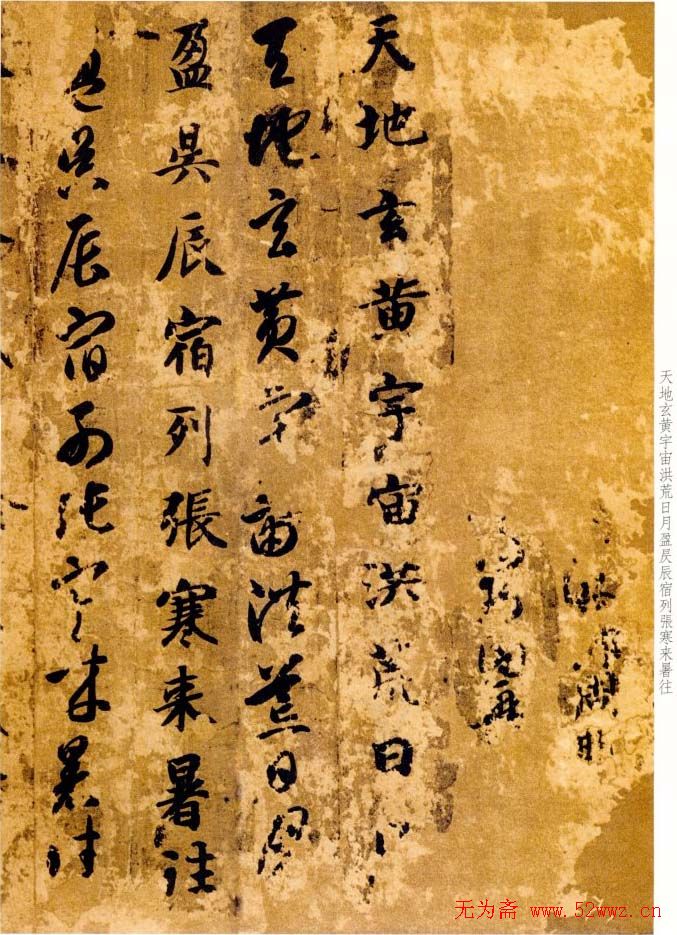 天地玄黄宇宙洪荒日月盈昃辰宿列張寒来暑往
天地玄黄宇宙洪荒日月
天地玄黄宇宙洪荒日月
盈昃辰宿列張寒来暑往
盈昃辰宿列張寒来暑往
无为斋 www.52wwz.cn